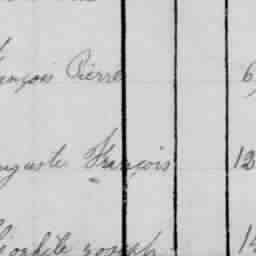 ançois Pierre 6
uguste François 12
éophile Joseph 15